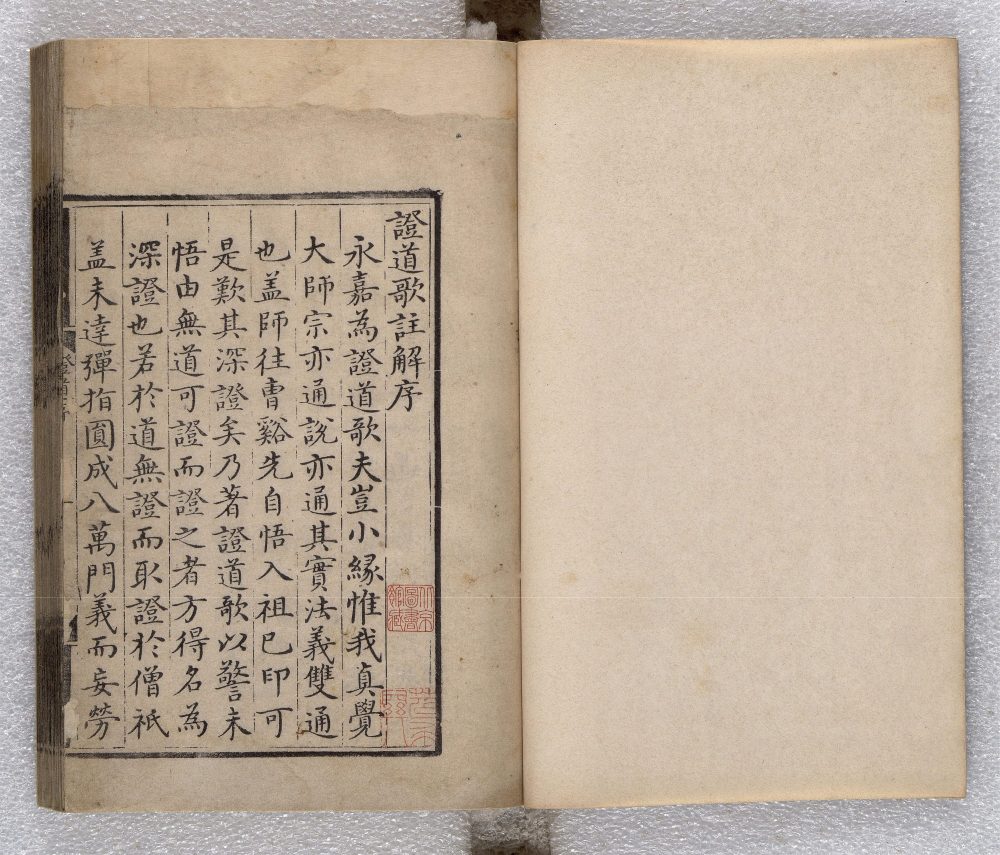 證道歌註解序
永嘉為證道歌夫豈小緣惟我真覺
大師宗亦通說亦通其實法義雙通
也盖師往曺谿先自悟入祖已印可
是歎其深證矣乃著證道歌以警未
悟由無道可證而證之者方得名為
深證也若於道無證而取證於僧祇
盖未達彈指圓成八萬門義而妄勞
北京圖書館藏